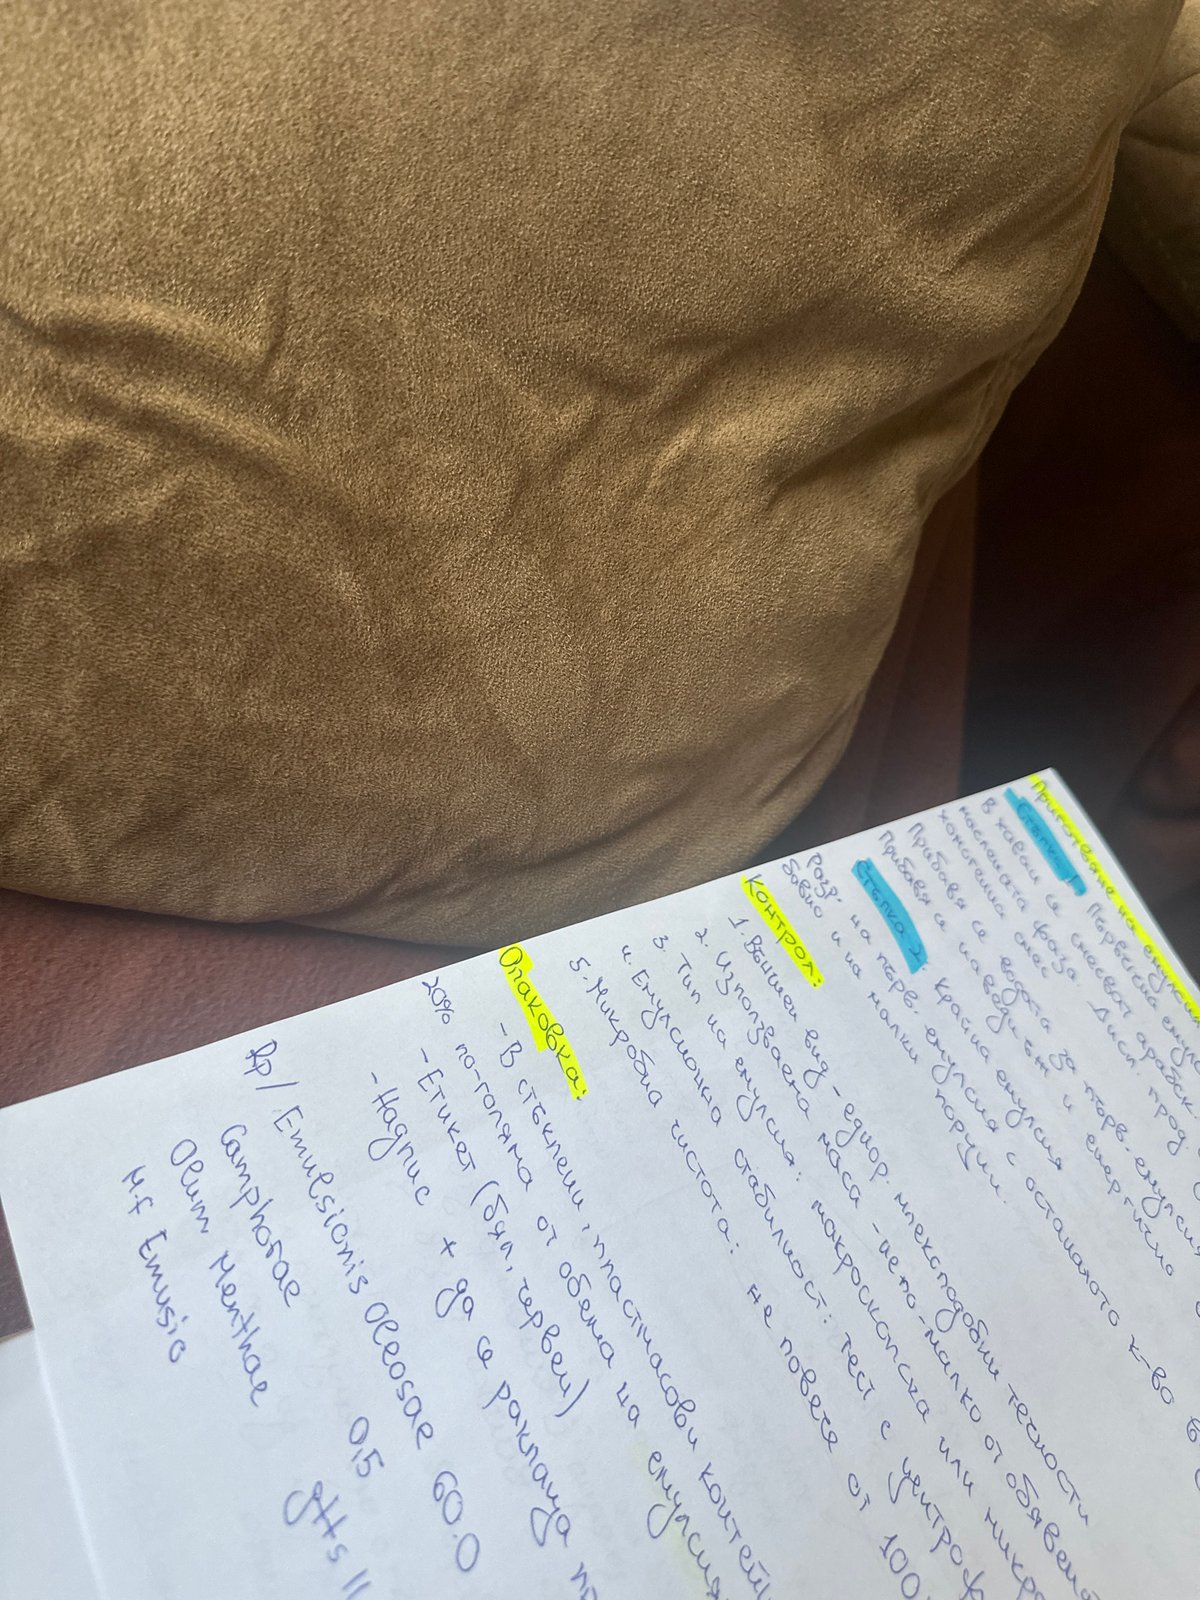 Приготвяне на емулсия
Стъпка 1 Първична емул
В хаван се смесват арабск
маслената фаза. Дисп. прод.
хомогенна смес
Прибавя се водата за първ. емулсия
Прибавя се наведнъж и енергично
Стъпка 2: Крайна емулсия
Разр. на първ. емулсия с останалото к-во в
бавно и на малки порции.
Контрол:
1. Външен вид - еднор. млекоподобни течности
2. Използваема маса - не по-малко от обявена
3. Тип на емулсия: макроскопски или микро
4. Емулсионна стабилност: тест с центроф
5. Микробна чистота: не повече от 100
Опаковка:
- В стъклени, пластмасови контейн
20% по-голяма от обема на емулсия
- Етикет (бял, червен)
- Надпис + да се разклаща пр
Rp/ Emulsionis Oleosae 60.0
Camphorae 0,5
Oleum Menthae gtts II
M.f Emusio